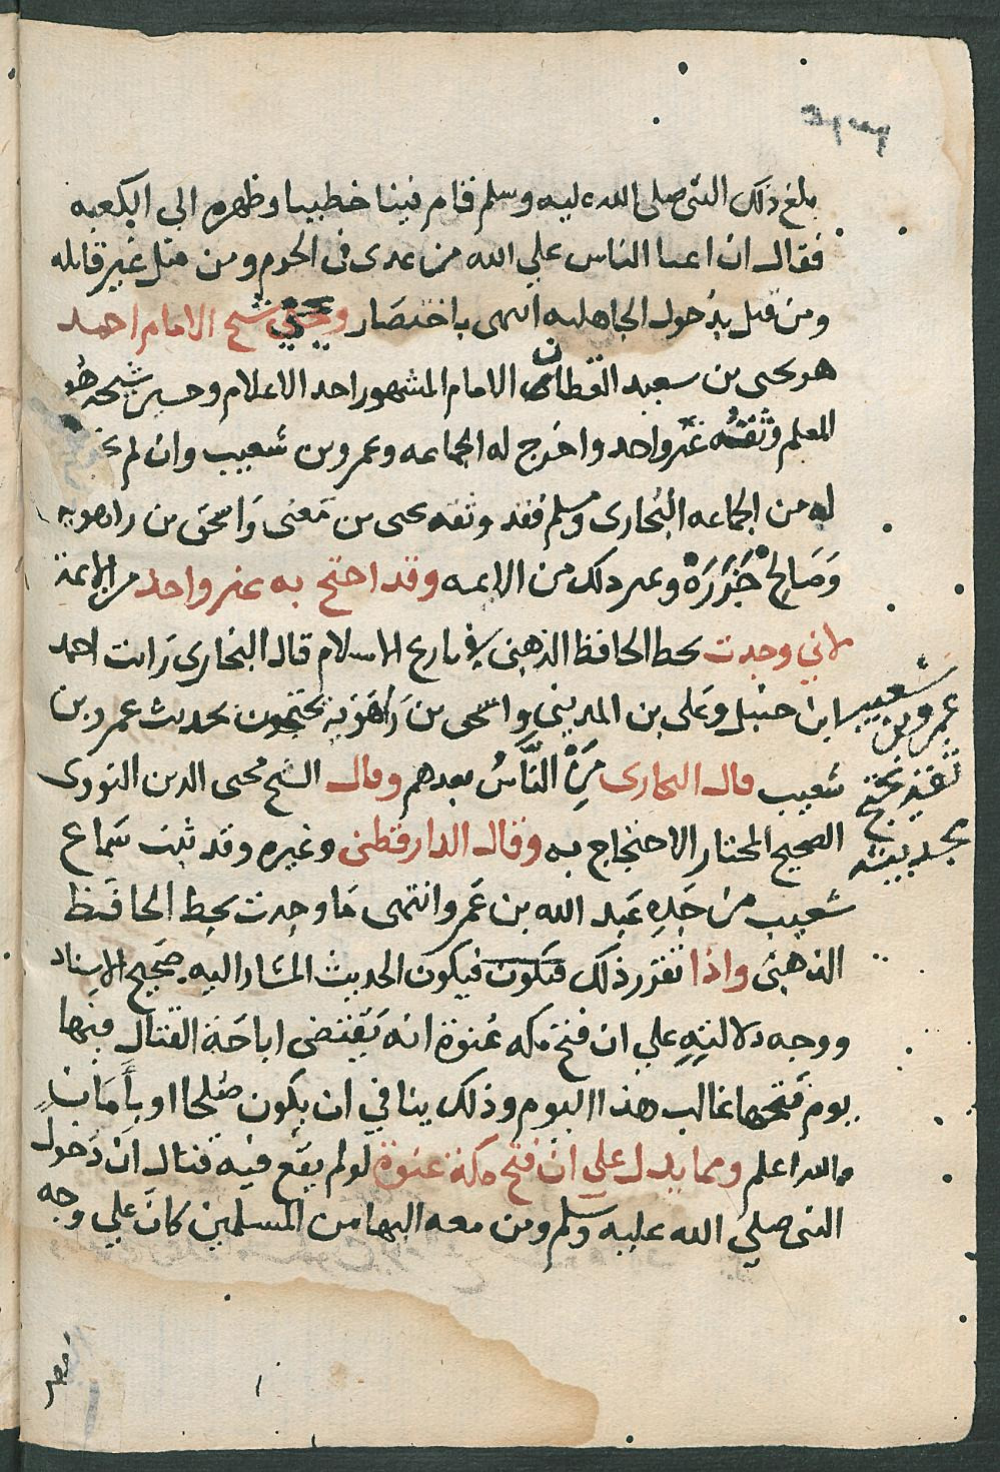 بلغ ذلك النبي صلى الله عليه وسلم فقام فينا خطيبا وظهره الى الكعبه
فقال ان اعتا الناس علي الله من عدى في الحرم ومن قتل غير قاتله
ومن قتل بذحول الجاهليه انتهى باختصار ويحيى شيخ الامام احمد
هو يحيى بن سعيد القطان الامام المشهور احد الاعلام وحسين شيخه هو
المعلم وثقه غير واحد واخرج له الجماعه وعمرو بن شعيب وان لم
له من الجماعه البخارى ومسلم فقد وثقه يحيى بن معين واسحق بن راهويه
وصالح جزره وغير ذلك من الايمه وقد احتج به غير واحد من الايمة
لاني وجدت بخط الحافظ الذهبي في تاريخ الاسلام قال البخارى رايت احمد
ابن حنبل وعلى بن المديني واسحق بن راهويه يحتجون بحديث عمرو بن
شعيب قال البخارى من الناس بعدهم وقال الشيخ محيى الدين النووى
الصحيح المختار الاحتجاج به وقال الدارقطنى وغيره وقد ثبت سماع
شعيب من جده عبد الله بن عمرو انتهى ما وجدت بخط الحافظ
الذهبى واذا تقرر ذلك فيكون فيكون الحديث المشار اليه صحيح الاسناد
ووجه دلالته علي ان فتح مكه عنوة انه يقتضى اباحة القتال فيها
يوم فتحها غالب هذا اليوم وذلك ينافي ان يكون صلحا او بأمان
والله اعلم ومما يدل علي ان فتح مكة عنوة لو لم يقع فيه قتال ان دخول
النبى صلي الله عليه وسلم ومن معه اليها من المسلمين كان علي وجه
عمرو بن شعيب
ثقة يحتج
بحديثه